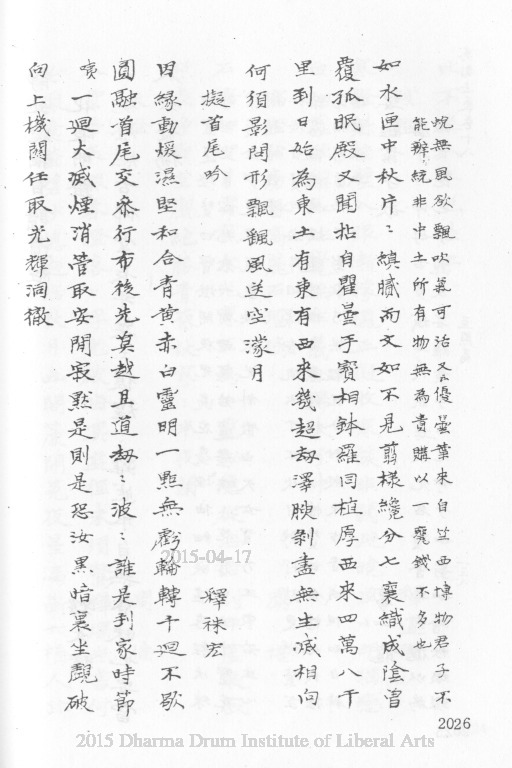 坑無風欲飄吹氣可治又云優曇華來自竺西博物君子不
能辦統非中土所有物無為貴購以一甕錢不多也
如水匣中秋片:縝膩而文如不見剪樣纔分七襄織成陰曾
覆孤眠殿又聞拈自瞿曇手寶相鉢羅同植厚西來四萬八千
里到日始為東土有東有西來幾超劫澤腴剝盡無生滅相向
何須影問形飄飄風送空濛月
擬首尾吟
釋袾宏
因緣動煖濕堅和合青黃赤白靈明一點無虧輪轉千迴不歇
圓融首尾交叅行布後先莫越且道劫:波:誰是到家時節
一迴大滅煙消管取安閒寂默是則是恐汝黑暗裏坐覷破
向上機關任取光輝洞徹
2015-04-17
2026
2015 Dharma Drum Institute of Liberal Arts